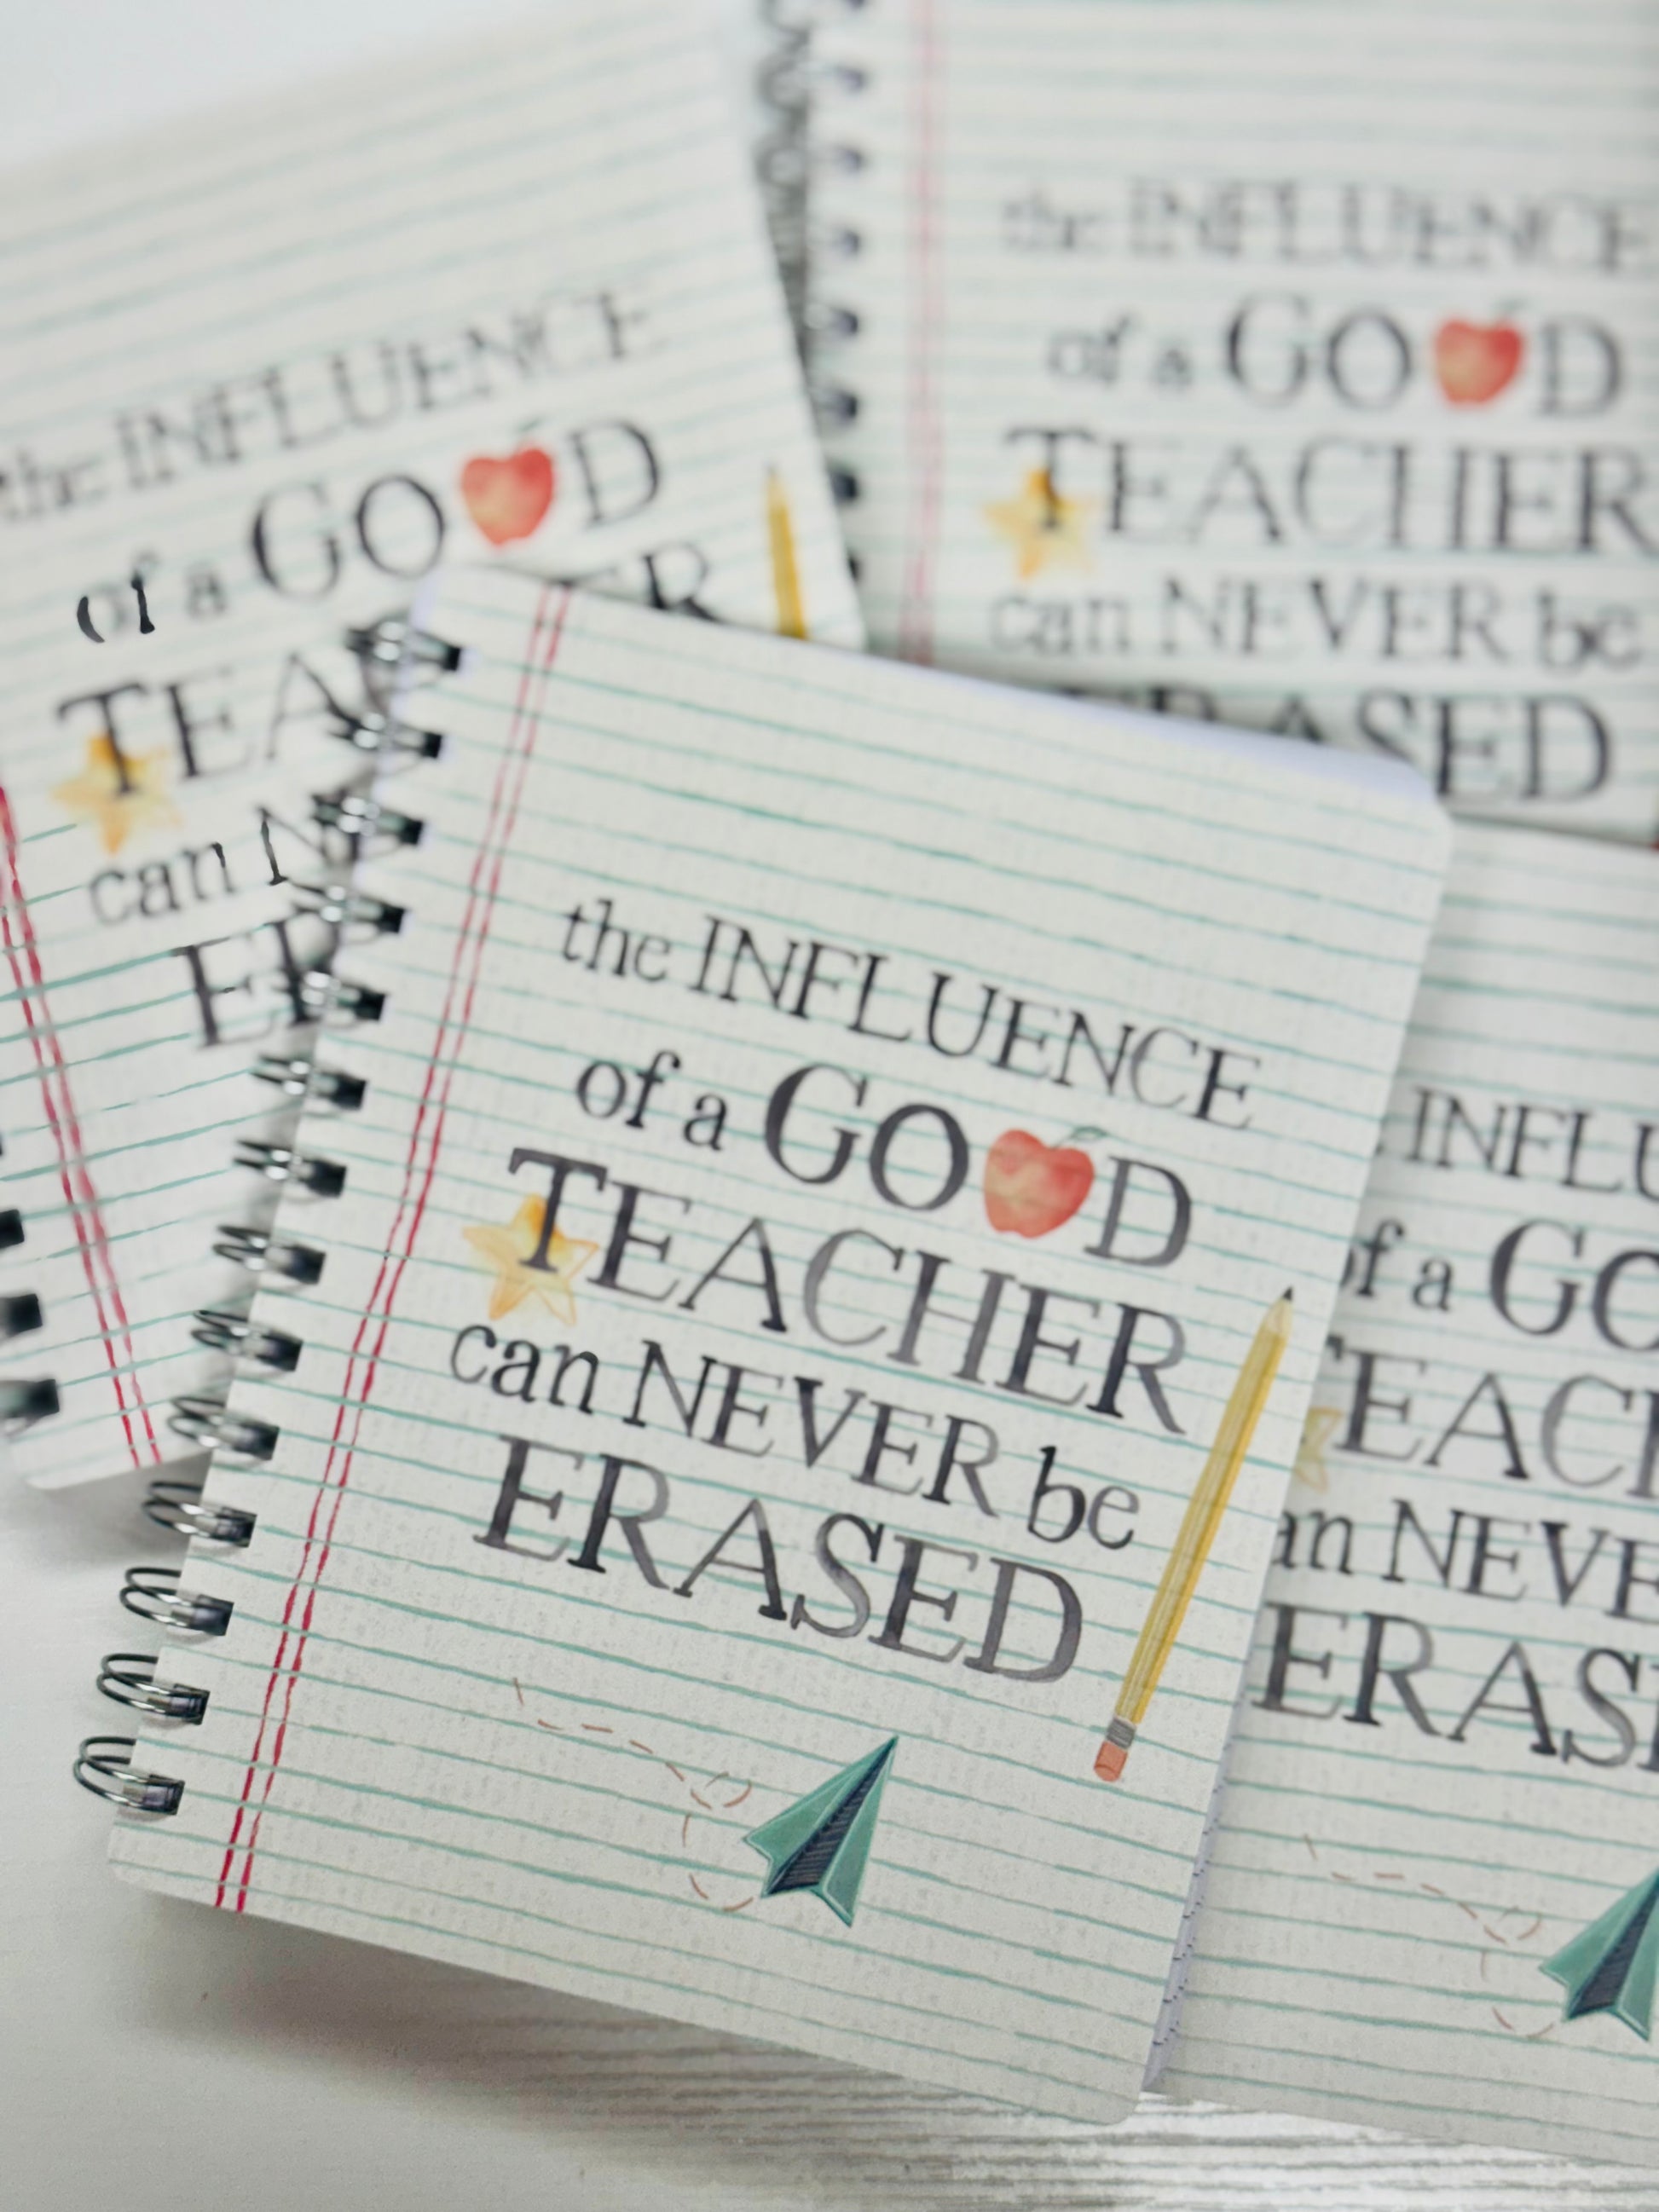 the INFLUENCE
of a GOOD
TEACHER
can NEVER be
ERASED
the INFLUENCE
of a GOOD
TEACHER
can NEVER be
ERASED
the INFLUENCE
of a GOOD
TEA
ER
can N
ER
INFLU
of a GO
TEACH
an NEVE
ERAS